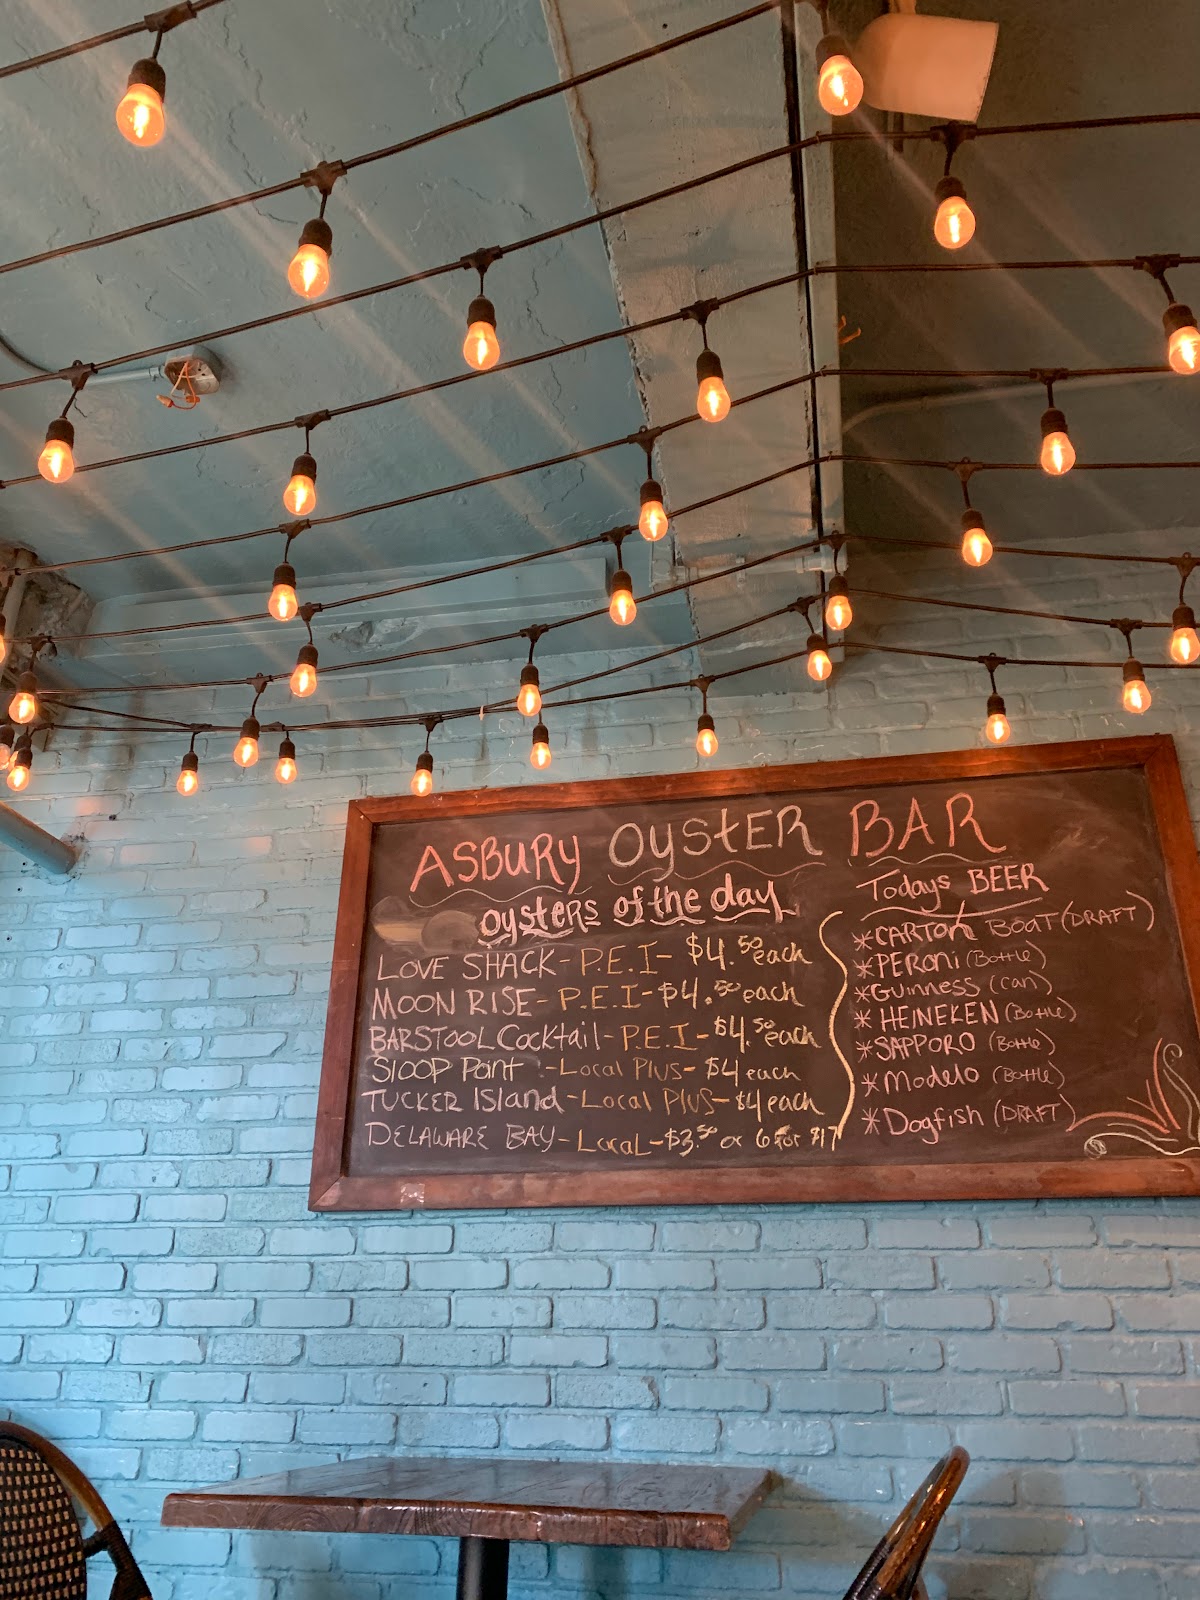 ASBURY OYSTER BAR
oysters of the day
LOVE SHACK - P.E.I - $4.50 each
MOON RISE - P.E.I - $4.50 each
BARSTOOL Cocktail - P.E.I - $4.50 each
SLOOP Point - Local Plus - $4 each
TUCKER ISland - Local Plus - $4 each
DELAWARE BAY - Local - $3.50 or 6 for $17
Todays BEER
*CARTON BOAT (DRAFT)
*PERONI (Bottle)
*GUINNESS (can)
*HEINEKEN (Bottle)
*SAPPORO (Bottle)
*Modelo (Bottle)
*Dogfish (DRAFT)